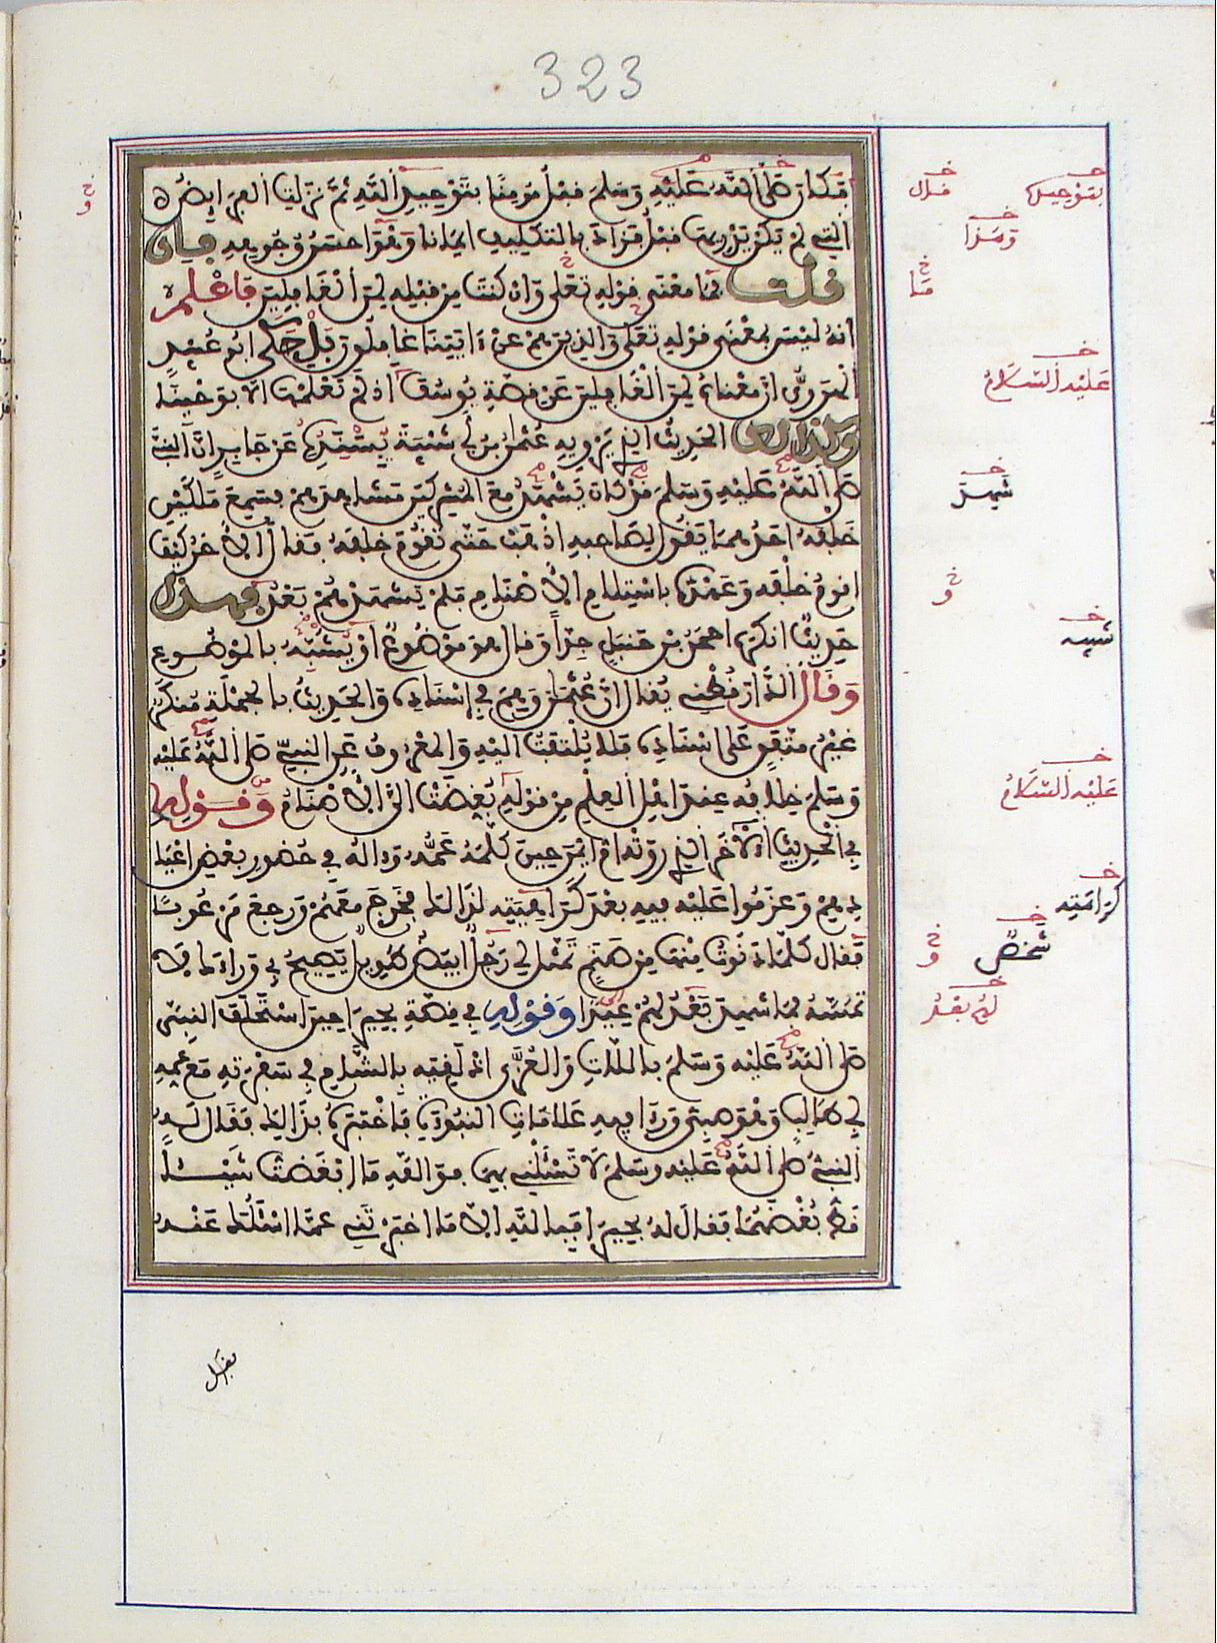 323
فكان صلى الله عليه وسلم قبل مومنا بتوحيد الله ثم نزلت الفرايض
التي لم يكن يدريها قبل فزاد بالتكليف ايمانا وهو احسن وجوهه فان
قلت فما معنى قوله تعلى وان كنت من قبله لمن الغافلين فاعلم
انه ليس بمعنى قوله تعلى والذين هم عن ءاياتنا غافلون بل حكى ابو عبيد
الهروي ان معناه لمن الغافلين عن قصة يوسف اذ لم تعلمها الا بوحينا
وكذلك الحديث الذي يرويه عثمن بن ابي شيبة بسنده عن جابر ان النبي
صلى الله عليه وسلم قد كان يشهد مع المشركين مشاهدهم فسمع ملكين
خلفه احدهما يقول لصاحبه اذهب حتى تقوم خلفه فقال الاخر كيف
اقوم خلفه وعهده باستلام الاصنام فلم يشهدهم بعد فهذا
حديث انكره احمد بن حنبل جدا وقال هو موضوع او يشبه بالموضوع
وقال الدارقطني يقال ان عثمن وهم في اسناده والحديث بالجملة منكر
غير متفق على اسناده فلا يلتفت اليه والمعروف عن النبي صلى الله عليه
وسلم خلافه عند اهل العلم من قوله بغضت الي الاصنام وقوله
في الحديث الاخر الذي روته ام ايمن حين كلمه عمه وءاله في حضور بعض اعيا
دهم وعزموا عليه فيه بعد كراهيته لذلك فخرج معهم ورجع مرعوبا
فقال كلما دنوت منها من صنم تمثل لي رجل ابيض طويل يصيح بي وراءك لا
تمسه فما شهد بعد لهم عيدا وقوله في قصة بحيرا حين استحلف النبي
صلى الله عليه وسلم باللات والعزى اذ لقيه بالشام في سفرته مع عمه
ابي طالب وهو صبي ورءا فيه علامات النبوة فاختبره بذلك فقال له
النبي صلى الله عليه وسلم لا تسئلني بهما فوالله ما ابغضت شيئا
قط بغضهما فقال له بحيرا فبالله الا ما اخبرتني عما اسئلك عنه
فقال
بتوحيده
قال
وهذا
ما
عليه السلام
شهد
و
شبيه
عليه السلام
كراهته
شخص
و
لهم بعد
و